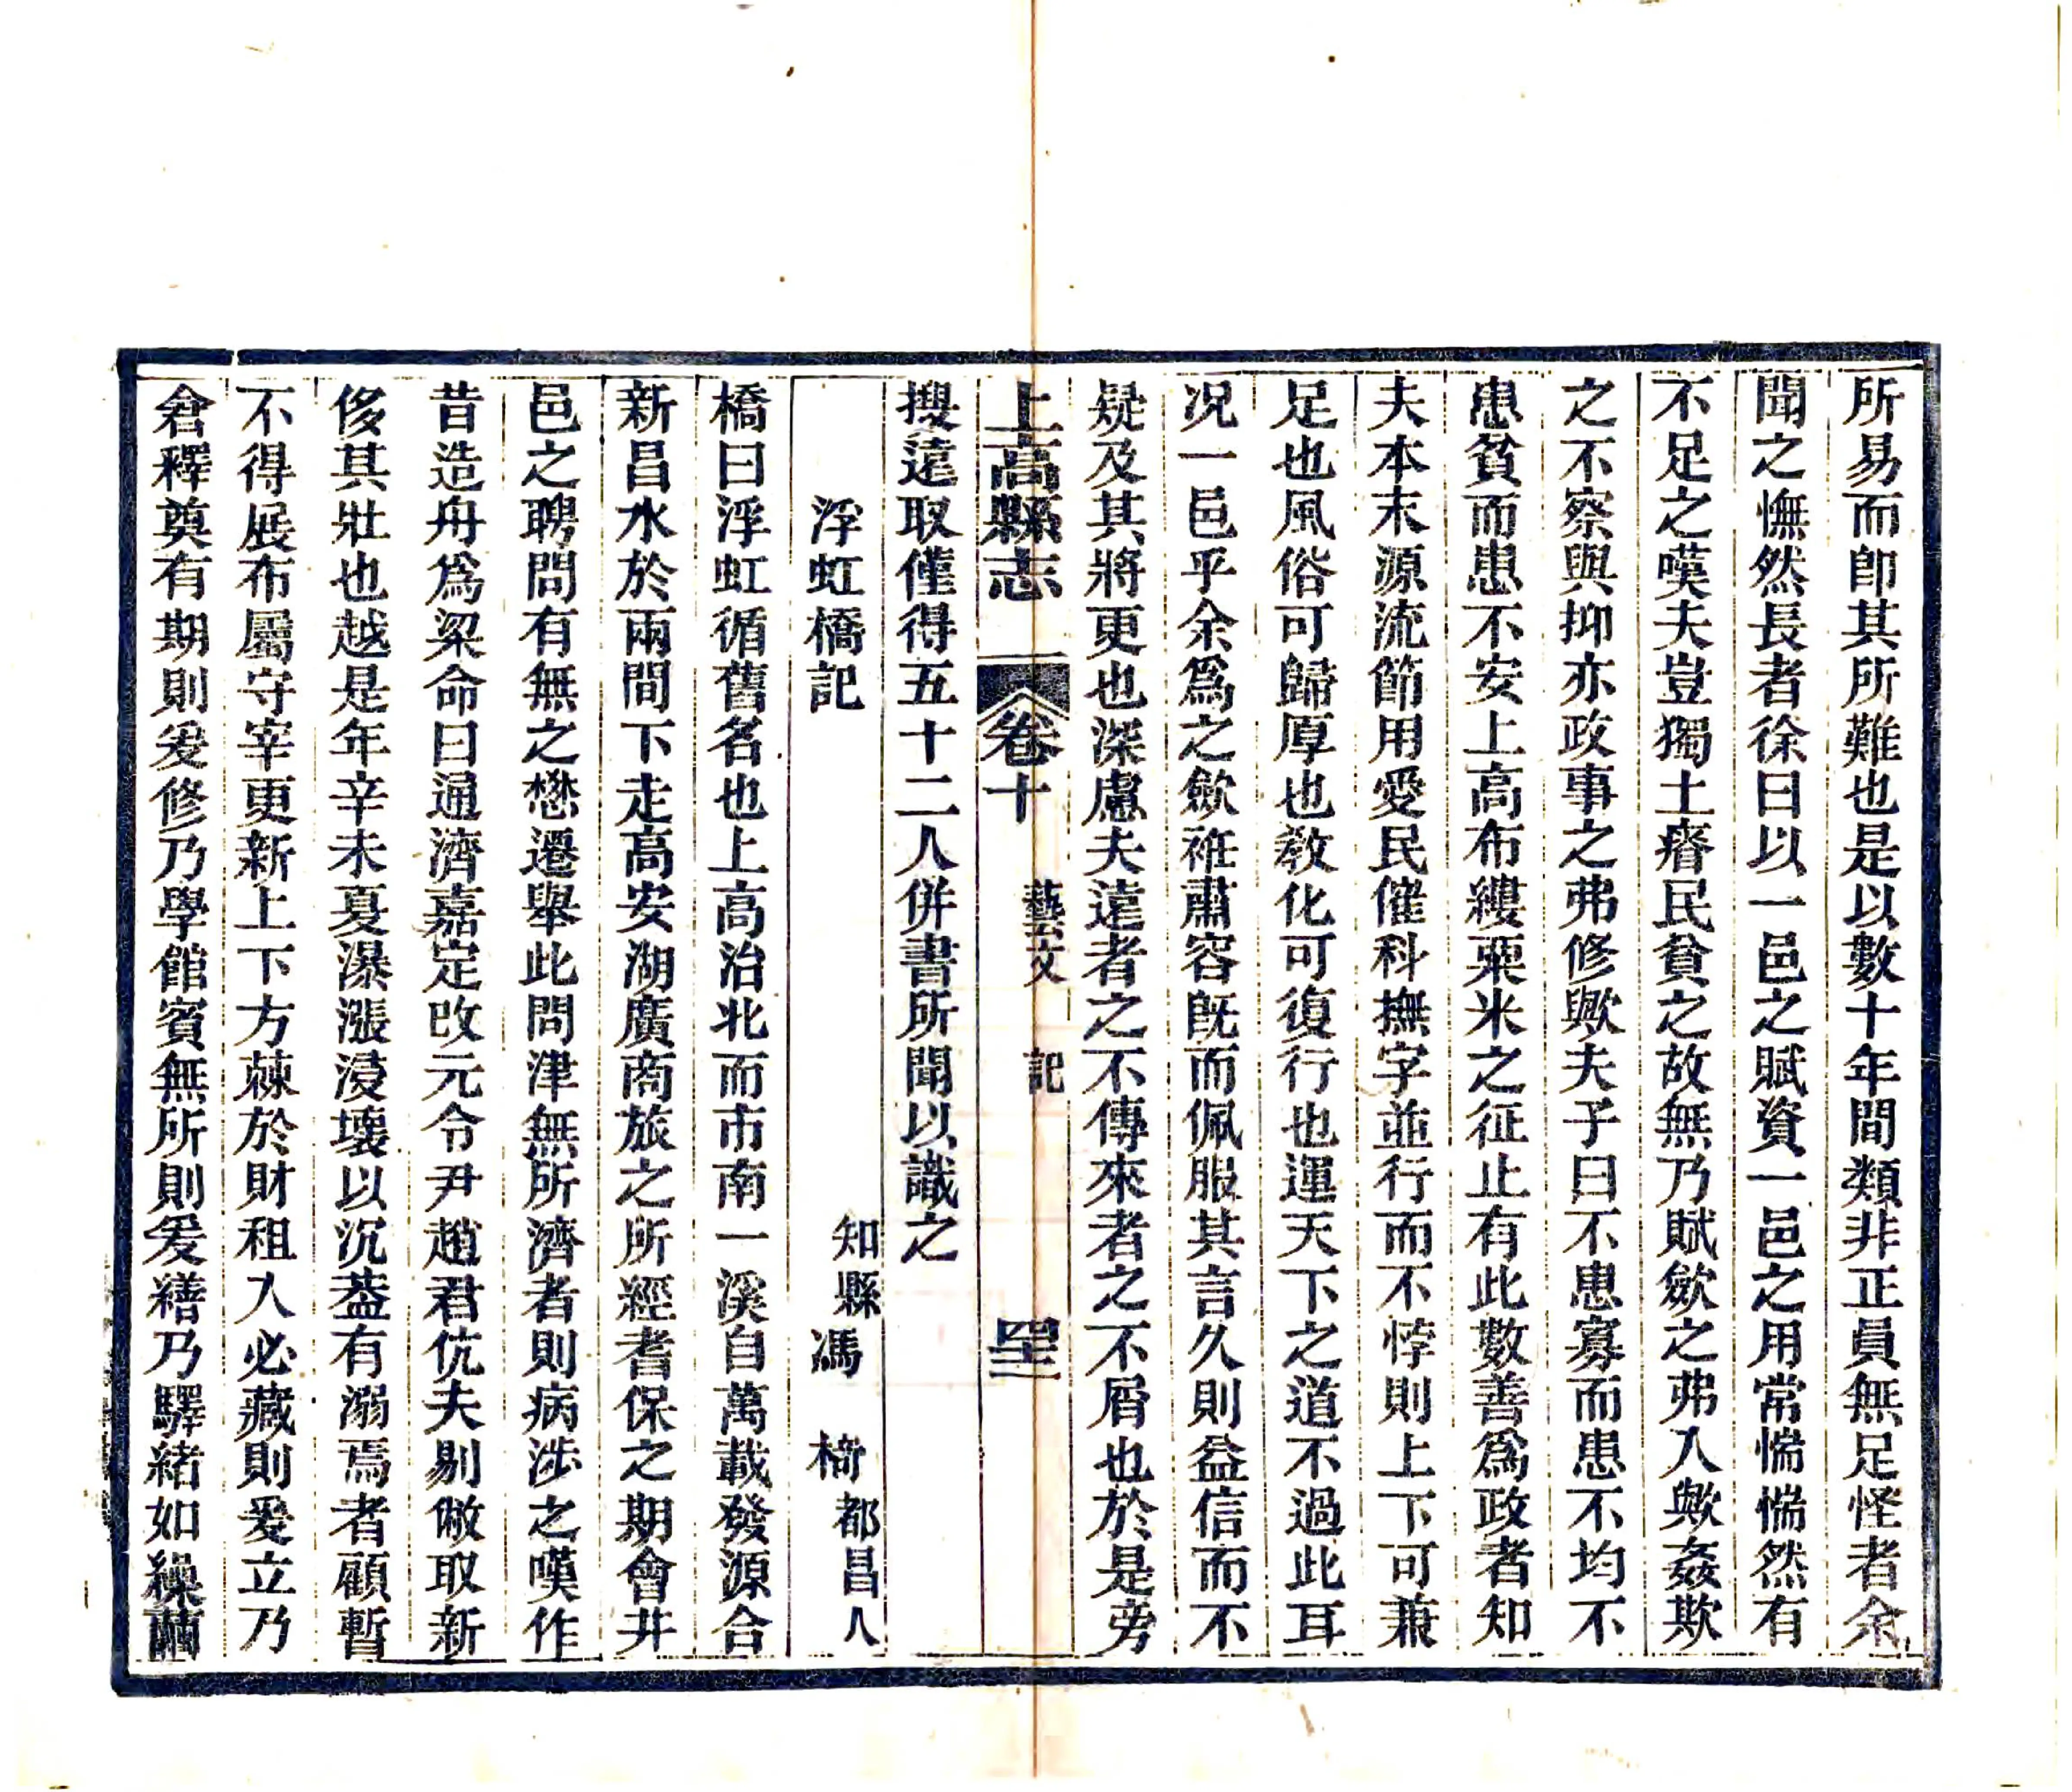 所易而卽其所難也是以數十年間類非正員無足怪者余
聞之憮然長者徐曰以一邑之賦資一邑之用常惴惴然有
不足之嘆夫豈獨土瘠民貧之故無乃賦歛之弗入歟姦欺
之不察與抑亦政事之弗修歟夫子曰不患寡而患不均不
患貧而患不安上高布縷粟米之征止有此數善爲政者知
夫本末源流節用愛民催科撫字並行而不悖則上下可兼
足也風俗可歸厚也敎化可復行也運天下之道不過此耳
况一邑乎余爲之歛袵肅容旣而佩服其言久則益信而不
疑及其將更也深慮夫遠者之不傳來者之不屑也於是旁
上高縣志 卷十 藝文 記 四二
搜遠取僅得五十二人併書所聞以識之
浮虹橋記 知縣馮 椅都昌人
橋曰浮虹循舊名也上高治北而市南一溪自萬載發源合
新昌水於兩間下走高安湖廣商旅之所經耆保之期會井
邑之聘問有無之懋遷舉此問津無所濟者則病涉之嘆作
昔造舟爲梁命曰通濟嘉定改元令尹趙君伉夫剔儆取新
侈其壯也越是年辛未夏瀑漲浸壞以沉葢有溺焉者顧暫
不得展布屬守宰更新上下方蘇於財租入必藏則爰立乃
倉釋奠有期則爰修乃學館賓無所則爰繕乃驛緒如繰繭